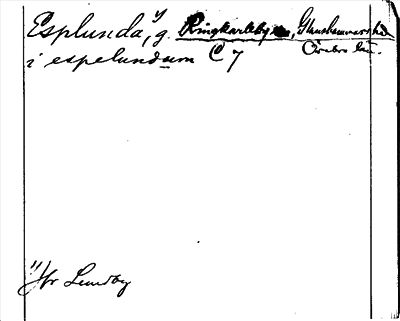 Esplunda, 1) g. Ringkarleby sn, Glanshammars hd
Örebro län.
i espelundum C 7
1) Hr Lundby